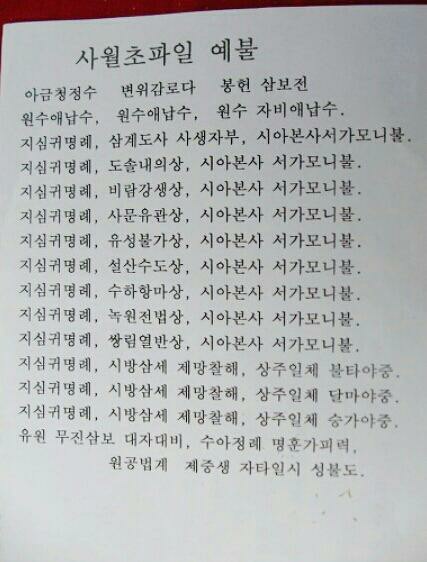 사월초파일 예불
아금청정수 변위감로다 봉헌 삼보전
원수애납수, 원수애납수, 원수 자비애납수.
지심귀명례, 삼계도사 사생자부, 시아본사서가모니불.
지심귀명례, 도솔내의상, 시아본사 서가모니불.
지심귀명례, 비람강생상, 시아본사 서가모니불.
지심귀명례, 사문유관상, 시아본사 서가모니불.
지심귀명례, 유성불가상, 시아본사 서가모니불.
지심귀명례, 설산수도상, 시아본사 서가모니불.
지심귀명례, 수하항마상, 시아본사 서가모니불.
지심귀명례, 녹원전법상, 시아본사 서가모니불.
지심귀명례, 쌍림열반상, 시아본사 서가모니불.
지심귀명례, 시방삼세 제망찰해, 상주일체 불타야중.
지심귀명례, 시방삼세 제망찰해, 상주일체 달마야중.
지심귀명례, 시방삼세 제망찰해, 상주일체 승가야중.
유원 무진삼보 대자대비, 수아정례 명훈가피력,
원공법계 제중생 자타일시 성불도.